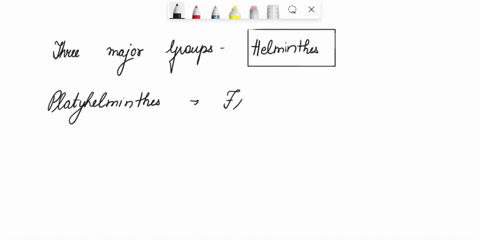 Three major Groups - Helminthes
Platyhelminthes → F